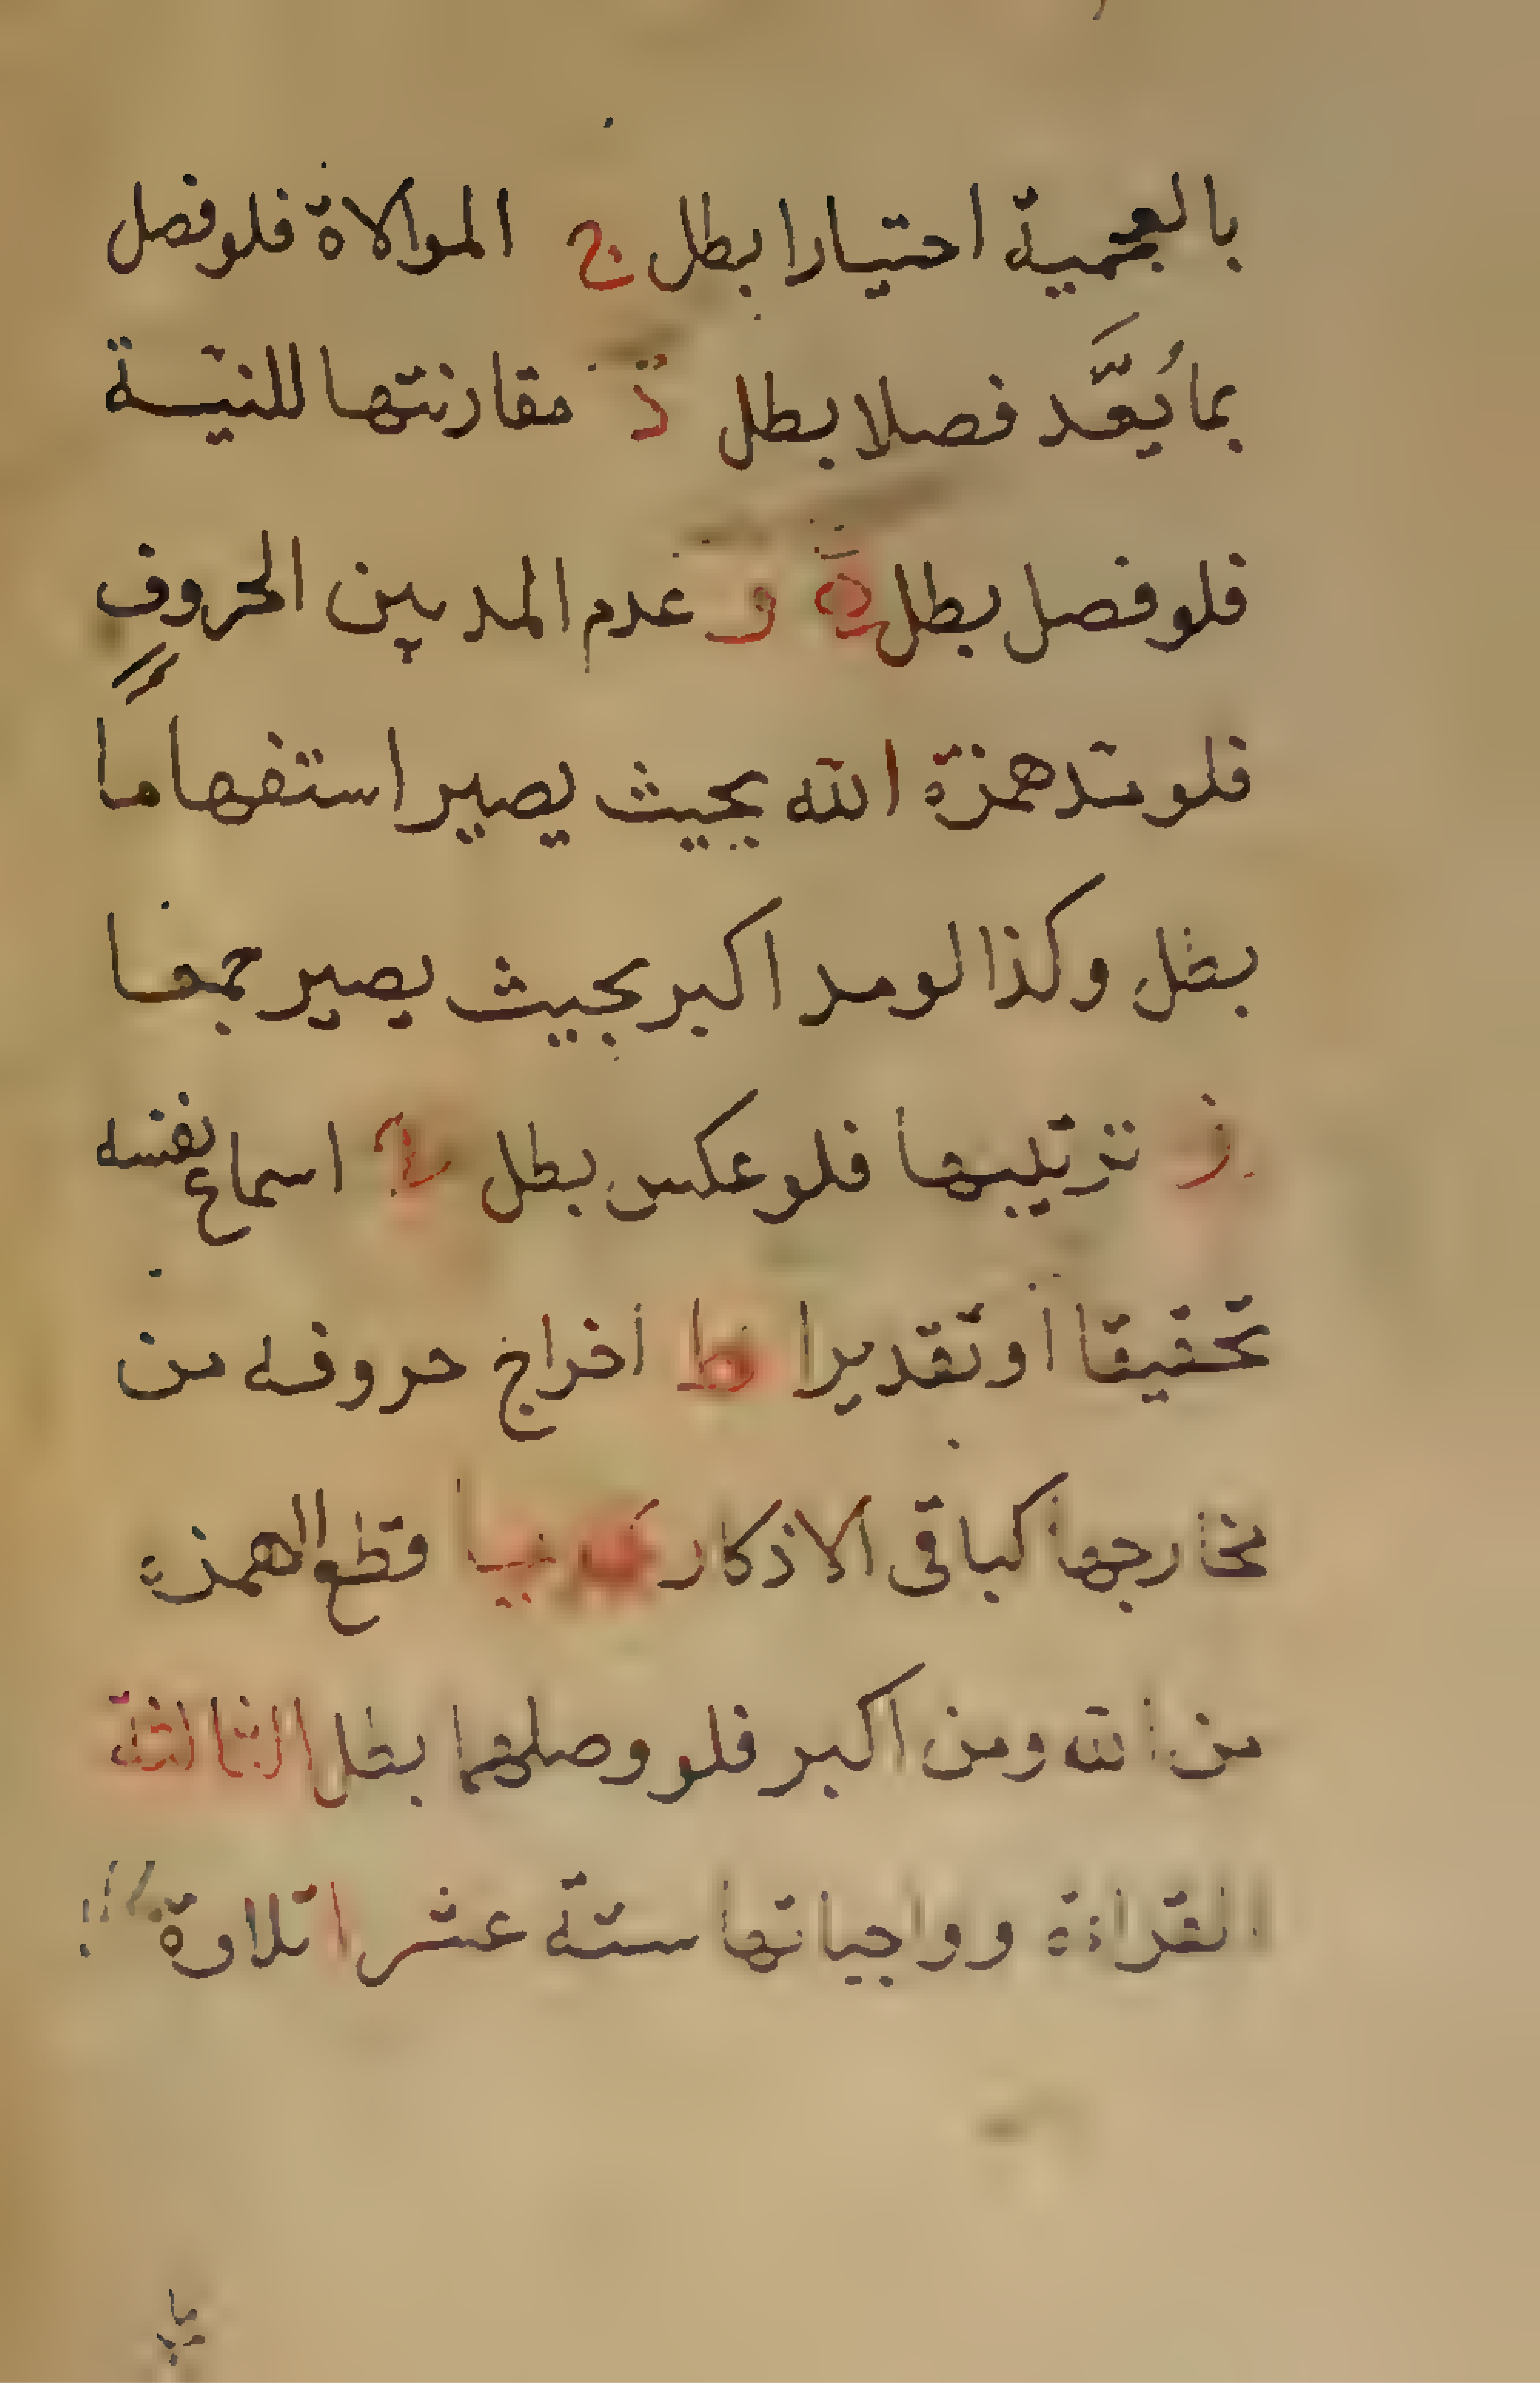 بالعجمية اختيارا بطل ج الموالاة فلو فصل
بما يُعَّد فصلا بطل د مقارنتها للنيّة
فلو فصل بطل ه و عدم المد بين الحروف
فلو مد همزة الله بحيث يصير استفهامًا
بطل وكذا لو مد اكبر بحيث يصير جمعا
ز ترتيبها فلو عكس بطل اسماع نفسه
تحقيقا او تقديرا ط اخراج حروفه من
مخارجها كباقى الاذكار يا قطع الهمزة
من الله ومن اكبر فلو وصلهما بطل الثالثة
القراءة وواجباتها ستة عشر ا تلاوة